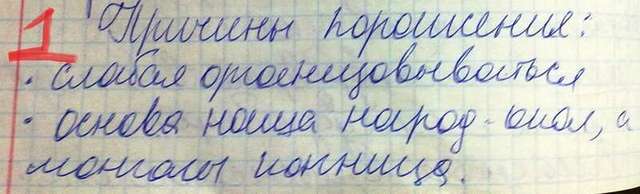 1 Причины порожения:
· слабая организовываться
· основа наша народ - окол, а
монголы конница.